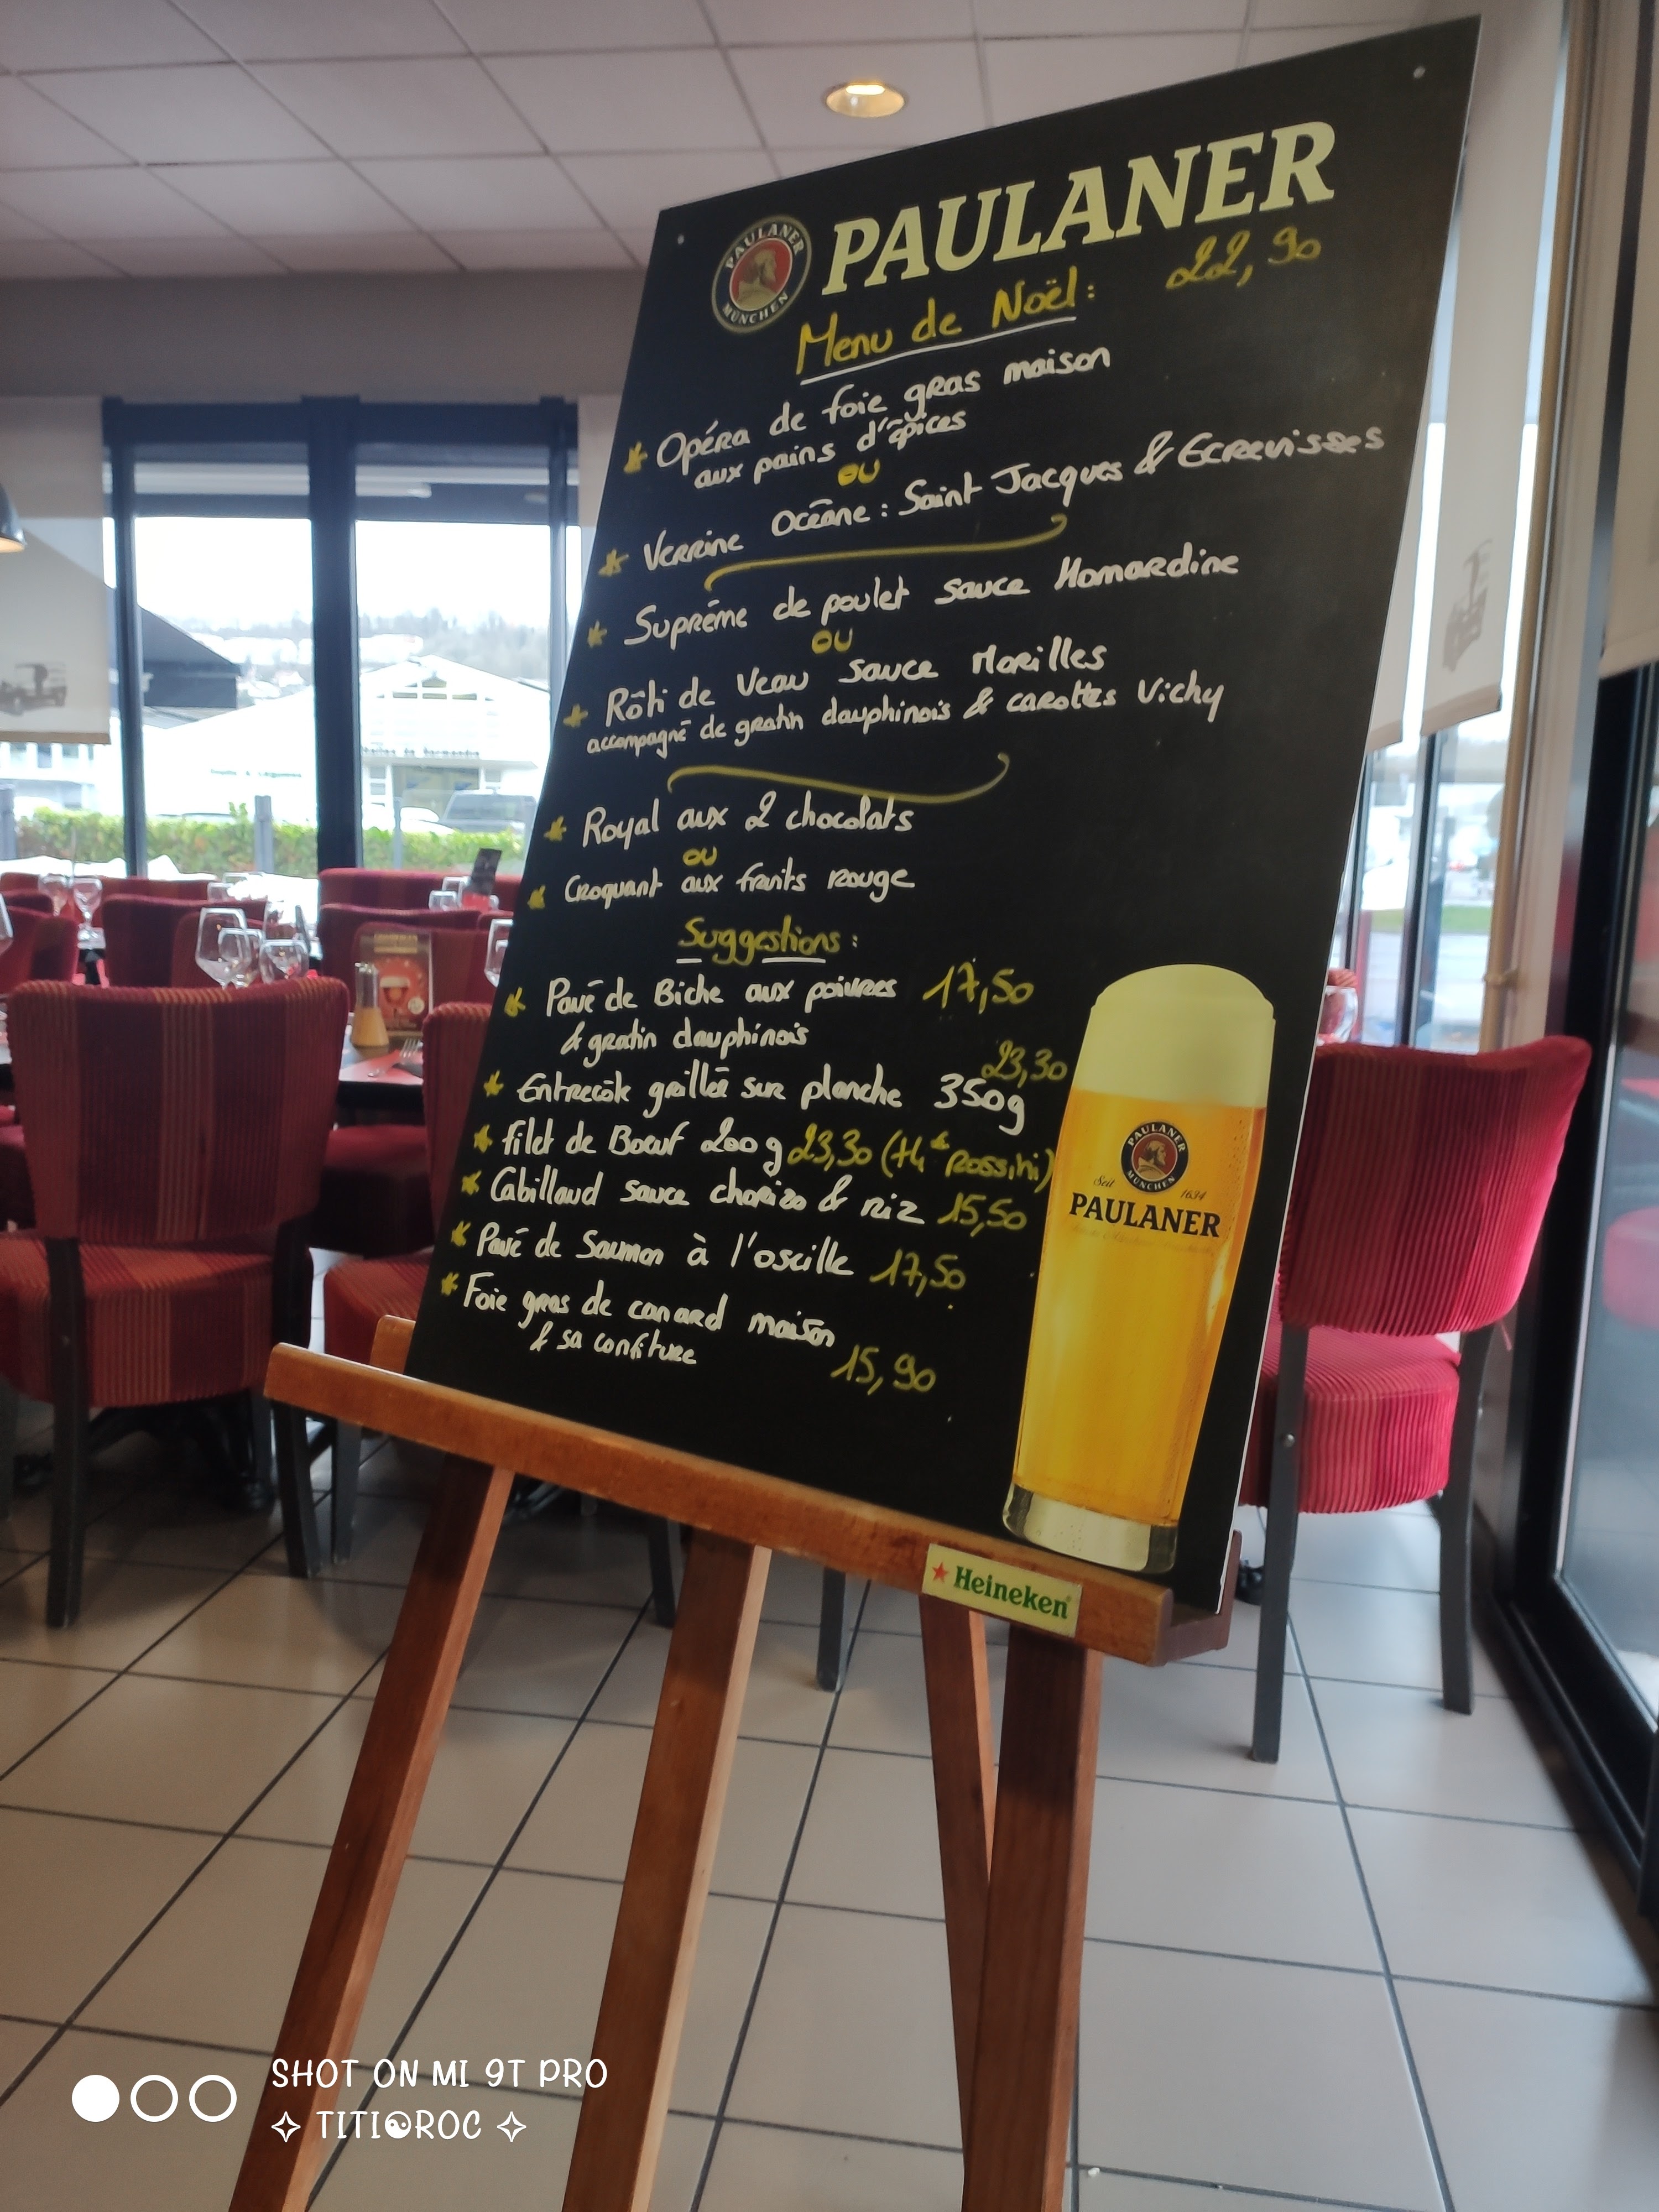 PAULANER
PAULANER
MÜNCHEN
Menu de Noël : 22,90
Opéra de foie gras maison
aux pains d'épices
ou
Verrine Océane : Saint Jacques & Ecrevisses
Suprême de poulet sauce Homardine
ou
Rôti de Veau sauce Morilles
accompagné de gratin dauphinois & carottes Vichy
Royal aux 2 chocolats
ou
Croquant aux fruits rouge
Suggestions :
Pavé de Biche aux poivres 17,50
& gratin dauphinois
23,30
Entrecôte grillée sur planche 350g
filet de Boeuf 200g 23,30 (+4€ Rossini)
Cabillaud sauce chorizo & riz 15,50
Pavé de Saumon à l'oseille 17,50
Foie gras de canard maison
& sa confiture
15,90
PAULANER
MÜNCHEN
Seit 1634
PAULANER
Heineken
SHOT ON MI 9T PRO
TITI☯ROC